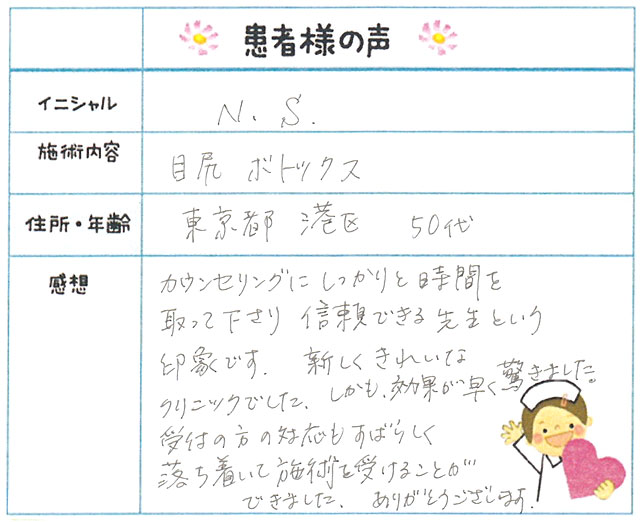 患者様の声
イニシャル N. S.
施術内容 目尻 ボトックス
住所・年齢 東京都 港区 50代
感想
カウンセリングにしっかりと時間を
取って下さり 信頼できる先生という
印象です. 新しくきれいな
クリニックでした. しかも、効果が早く驚きました。
受付の方の対応もすばらしく
落ち着いて施術を受けることが
できました. ありがとうございます.